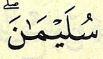 سُلَيْمَٰنَۖ